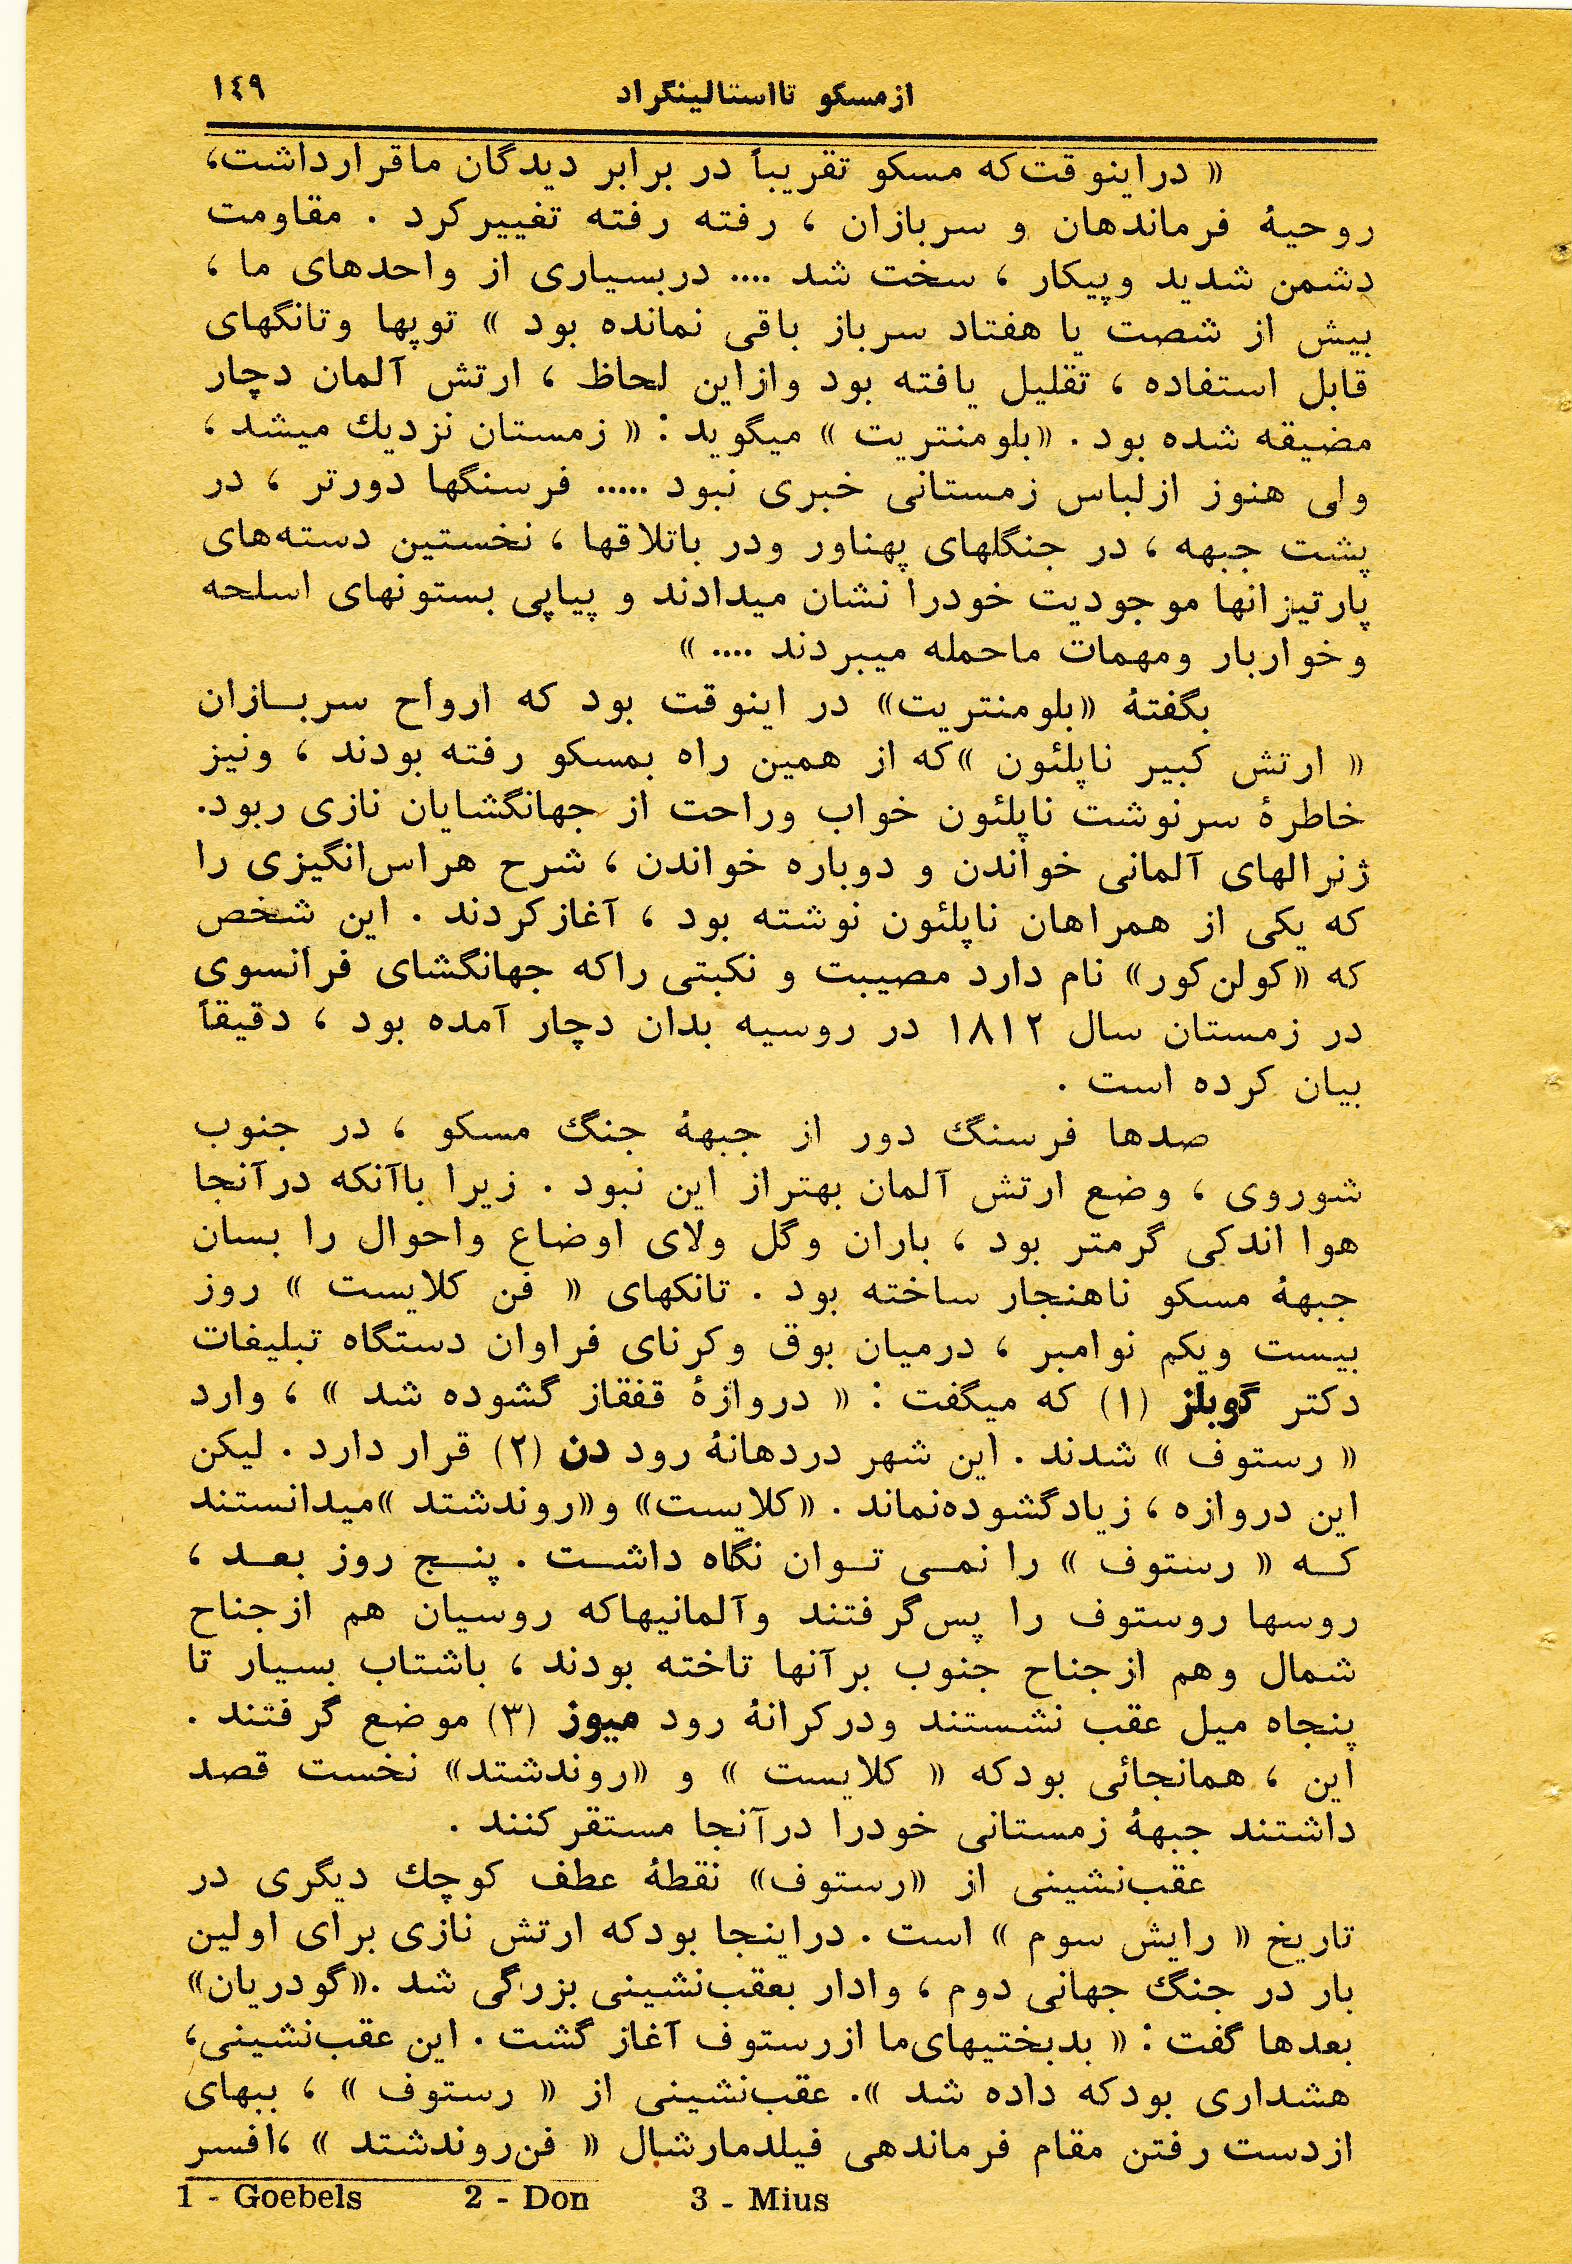 ازمسکو تااستالینگراد ١٤٩
« دراینوقت‌که مسکو تقریباً در برابر دیدگان ماقرارداشت،
روحیهٔ فرماندهان و سربازان ، رفته رفته تغییرکرد . مقاومت
دشمن شدید وپیکار ، سخت شد .... دربسیاری از واحدهای ما ،
بیش از شصت یا هفتاد سرباز باقی نمانده بود » توپها وتانگهای
قابل استفاده ، تقلیل یافته بود وازاین لحاظ ، ارتش آلمان دچار
مضیقه شده بود . «بلومنتریت » میگوید : « زمستان نزدیك میشد ،
ولی هنوز ازلباس زمستانی خبری نبود ..... فرسنگها دورتر ، در
پشت جبهه ، در جنگلهای پهناور ودر باتلاقها ، نخستین دسته‌های
پارتیزانها موجودیت خودرا نشان میدادند و پیاپی بستونهای اسلحه
وخواربار ومهمات ماحمله میبردند .... »
بگفتهٔ «بلومنتریت» در اینوقت بود که ارواح سربـازان
« ارتش کبیر ناپلئون »که از همین راه بمسکو رفته بودند ، ونیز
خاطرهٔ سرنوشت ناپلئون خواب وراحت از جهانگشایان نازی ربود.
ژنرالهای آلمانی خواندن و دوباره خواندن ، شرح هراس‌انگیزی را
که یکی از همراهان ناپلئون نوشته بود ، آغازکردند . این شخص
که «کولن‌کور» نام دارد مصیبت و نکبتی راکه جهانگشای فرانسوی
در زمستان سال ١٨١٢ در روسیه بدان دچار آمده بود ، دقیقاً
بیان کرده است .
صدها فرسنگ دور از جبههٔ جنگ مسکو ، در جنوب
شوروی ، وضع ارتش آلمان بهتراز این نبود . زیرا باآنکه درآنجا
هوا اندکی گرمتر بود ، باران وگل ولای اوضاع واحوال را بسان
جبههٔ مسکو ناهنجار ساخته بود . تانکهای « فن کلایست » روز
بیست ویکم نوامبر ، درمیان بوق وکرنای فراوان دستگاه تبلیغات
دکتر گوبلز (١) که میگفت : « دروازهٔ قفقاز گشوده شد » ، وارد
« رستوف » شدند . این شهر دردهانهٔ رود دن (٢) قرار دارد . لیکن
این دروازه ، زیادگشوده‌نماند . «کلایست» و«روندشتد »میدانستند
کـه « رستوف » را نمـی تـوان نگاه داشـت . پنـج روز بعـد ،
روسها روستوف را پس‌گرفتند وآلمانیهاکه روسیان هم ازجناح
شمال وهم ازجناح جنوب برآنها تاخته بودند ، باشتاب بسیار تا
پنجاه میل عقب نشستند ودرکرانهٔ رود میوز (٣) موضع گرفتند .
این ، همانجائی بودکه « کلایست » و «روندشتد» نخست قصد
داشتند جبههٔ زمستانی خودرا درآنجا مستقرکنند .
عقب‌نشینی از «رستوف» نقطهٔ عطف کوچك دیگری در
تاریخ « رایش سوم » است . دراینجا بودکه ارتش نازی برای اولین
بار در جنگ جهانی دوم ، وادار بعقب‌نشینی بزرگی شد .«گودریان»
بعدها گفت : « بدبختیهای‌ما ازرستوف آغاز گشت . این عقب‌نشینی،
هشداری بودکه داده شد ». عقب‌نشینی از « رستوف » ، ببهای
ازدست رفتن مقام فرماندهی فیلدمارشال « فن‌روندشتد » ،افسر
1 - Goebels 2 - Don 3 - Mius